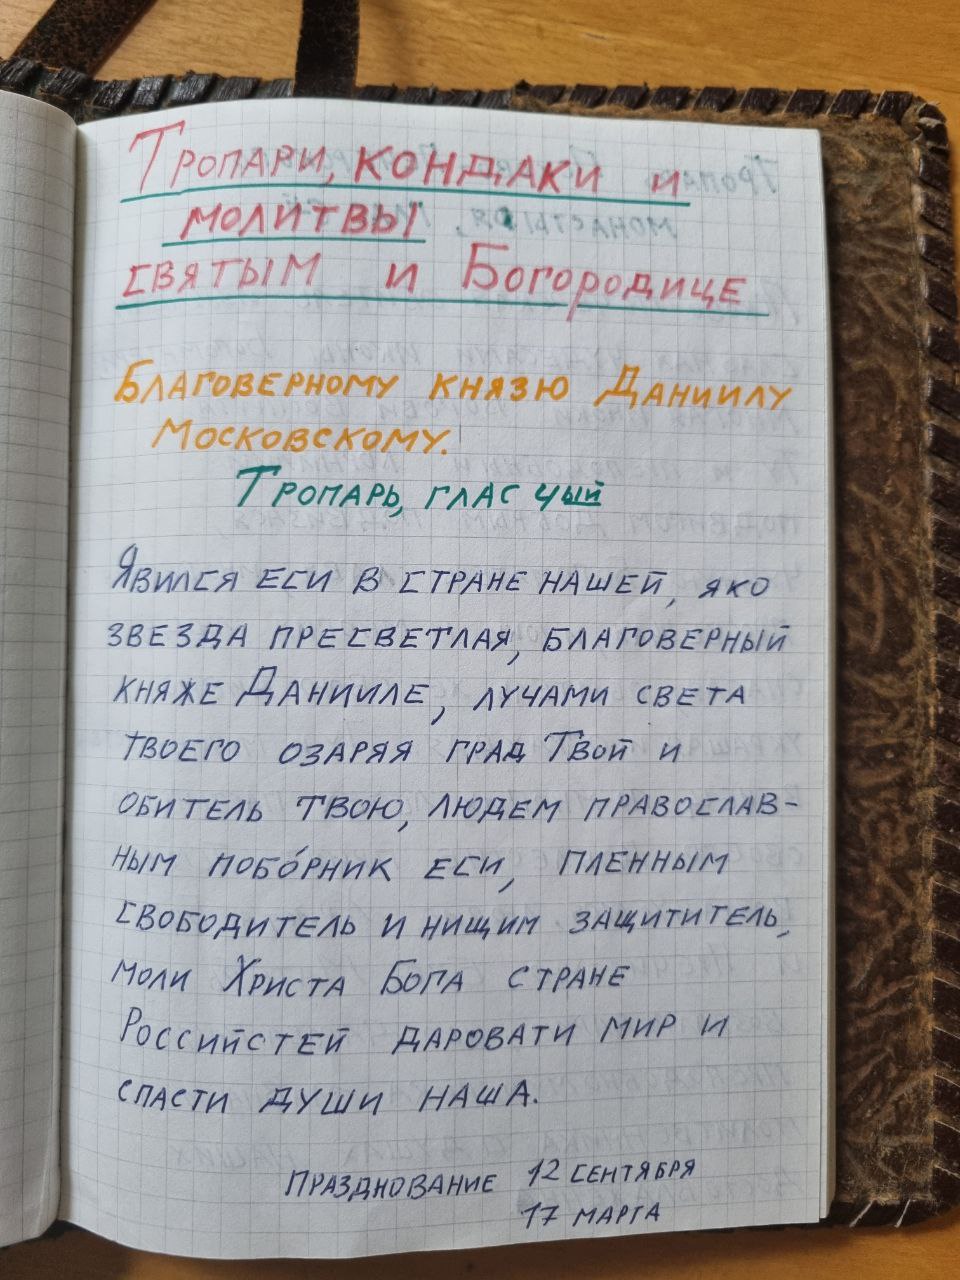 Тропари, кондаки и
молитвы
святым и Богородице
Благоверному князю Даниилу
Московскому.
Тропарь, глас 4ый
Явился еси в стране нашей, яко
звезда пресветлая, благоверный
княже Данииле, лучами света
твоего озаряя град Твой и
обитель твою, людем православ-
ным побо́рник еси, пленным
свободитель и нищим защититель,
моли Христа Бога стране
Российстей даровати мир и
спасти души наша.
Празднование 12 сентября
17 марта